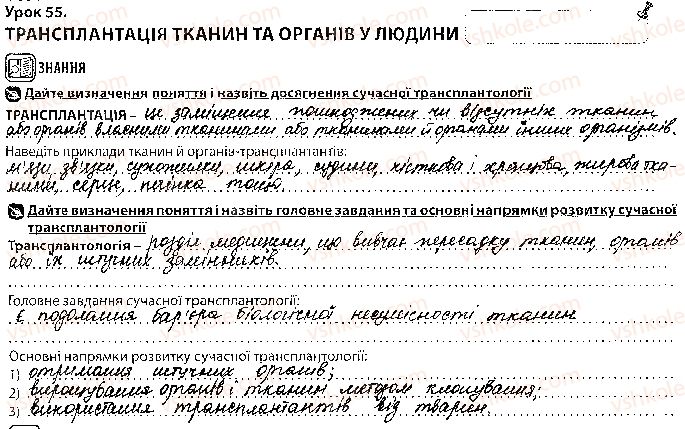 Урок 55.
ТРАНСПЛАНТАЦІЯ ТКАНИН ТА ОРГАНІВ У ЛЮДИНИ
ЗНАННЯ
Дайте визначення поняття і назвіть досягнення сучасної трансплантології
ТРАНСПЛАНТАЦІЯ – це заміщення пошкоджених чи відсутніх тканин
або органів власними тканинами або тканинами й органами інших організмів.
Наведіть приклади тканин й органів-трансплантантів:
м'язи, зв'язки, сухожилки, шкіра, судини, кісткова і хрящова, жирова тка-
нини, серце, печінка тощо.
Дайте визначення поняття і назвіть головне завдання та основні напрямки розвитку сучасної
трансплантології
Трансплантологія – розділ медицини, що вивчає пересадку тканин, органів
або їх штучних замінників.
Головне завдання сучасної трансплантології:
є подолання бар'єра біологічної несумісності тканин
Основні напрямки розвитку сучасної трансплантології:
1) отримання штучних органів;
2) вирощування органів і тканин методом клонування;
3) використання трансплантантів від тварин.
vshkole.com